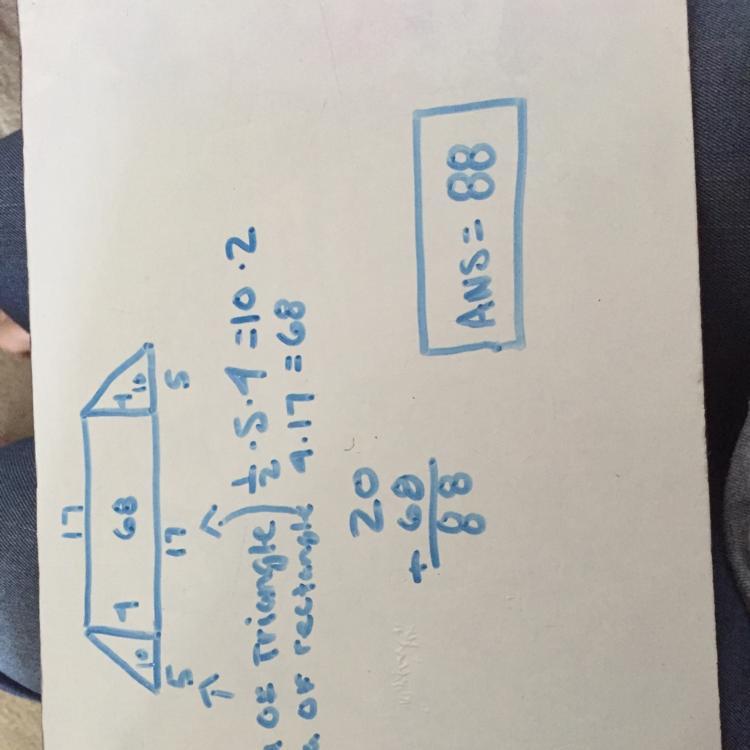 17
10 4 68 4 10
5 17 5
of Triangle) 1/2 · 5 · 4 = 10 · 2
of rectangle 4 · 17 = 68
20
+ 68
88
ANS = 88